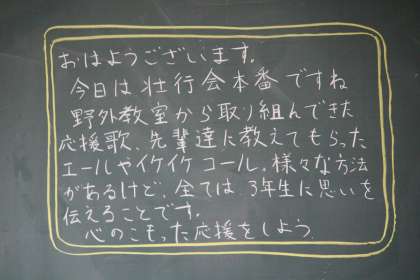 おはようございます。
今日は壮行会本番ですね
野外教室から取り組んできた
応援歌、先輩達に教えてもらった
エールやイケイケコール。様々な方法
があるけど、全ては、3年生に思いを
伝えることです。
心のこもった応援をしよう